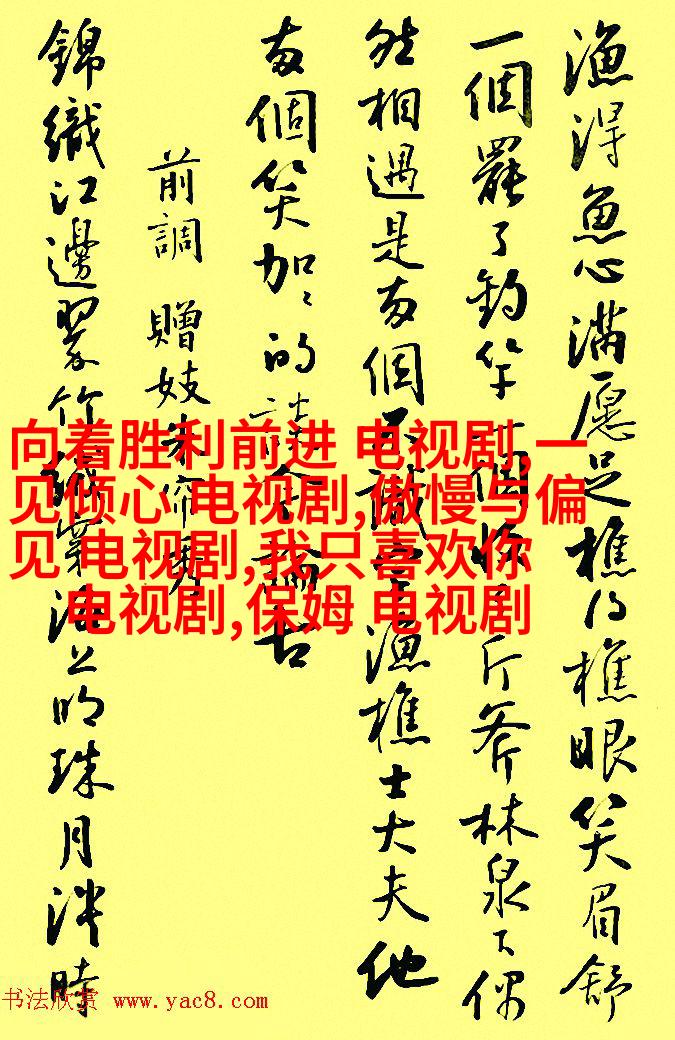 漁得魚心滿愿足樵得樵眼笑眉舒
一個罷了釣竿一個收了斤斧林泉下偶
然相遇是两個不識字漁樵士大夫他
两個笑加加的談今論古
前調 贈妓朱帘秀
錦織江邊翠竹絨穿海上明珠月淡時
向着胜利前进 电视剧,一
见倾心 电视剧,傲慢与偏
见 电视剧,我只喜欢你
电视剧,保姆 电视剧
书法欣赏 www.yac8.com